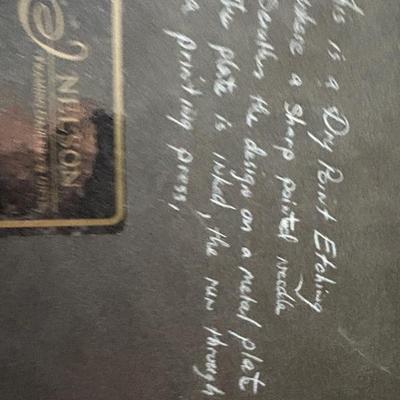 is is a Dry Point Etching
where a sharp pointed needle
scribes the design on a metal plate
the plate is inked, the run through
a printing press,
NEILSON